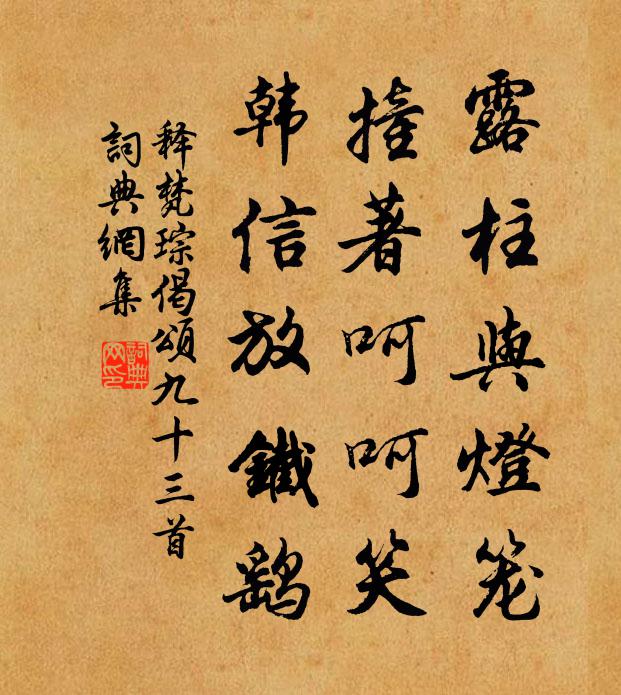 露柱與燈笼
撞著呵呵笑
韩信放鐵鷂
释梵琮偈頌九十三首
詞典網集
詞典網印